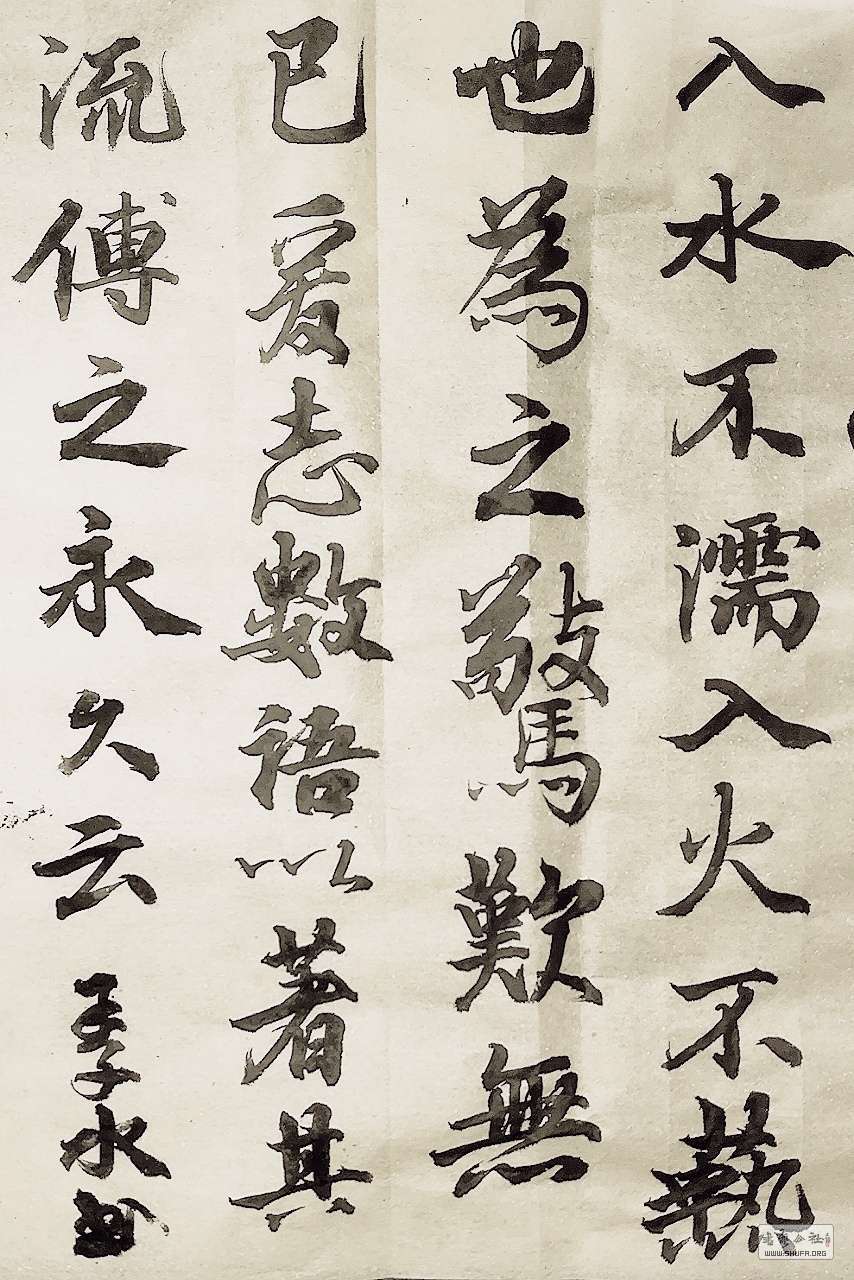 入水不濡入火不爇
也為之驚歎無
已爰志數語以著其
流傳之永久云 季水
WWW.SHUFA.ORG